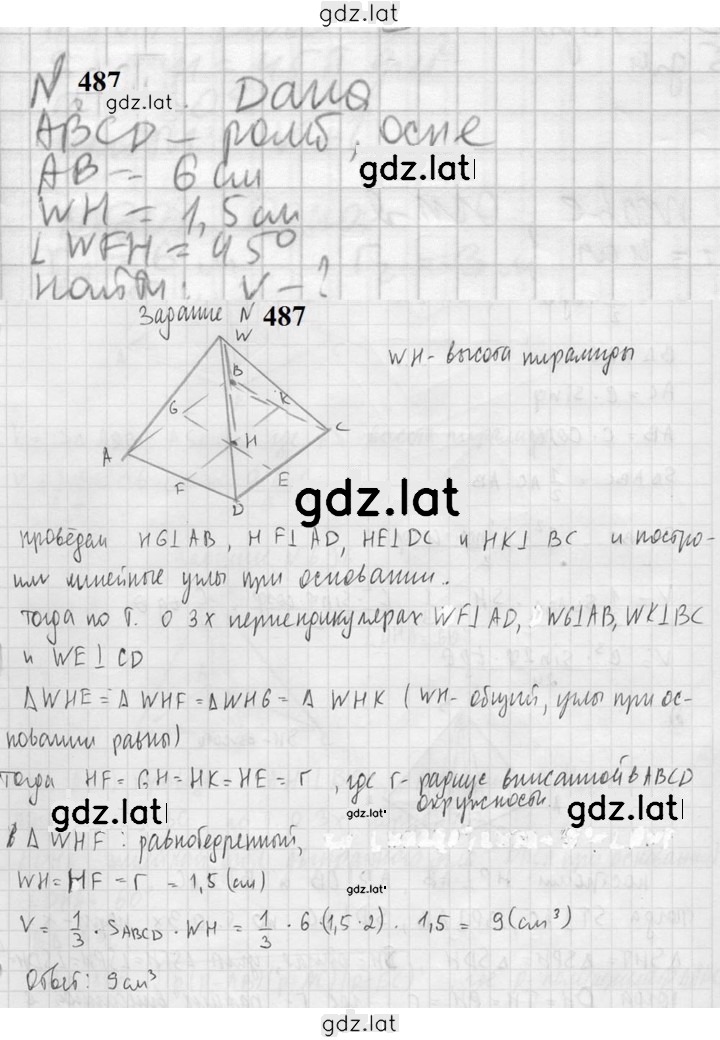 gdz.lat
N 487 Дано
gdz.lat
ABCD – ромб, осн-е
gdz.lat
AB = 6 см
WH = 1,5 см
∠ WFH = 45°
Найти: V – ?
Задание N 487
W
WH- высота пирамиды
B
G
K
A
H
C
F
E
D
gdz.lat
проведём HG⊥AB, HF⊥AD, HE⊥DC и HK⊥BC и постро-
им линейные углы при основании.
тогда по т. о 3х перпендикулярах WF⊥AD, WG⊥AB, WK⊥BC
и WE⊥CD
Δ WHE = Δ WHF = Δ WHG = Δ WHK ( WH- общий, углы при ос-
новании равны)
тогда HF = GH = HK = HE = r , где r- радиус вписанной в ABCD
окружности.
gdz.lat gdz.lat gdz.lat
в Δ WHF : равнобедренный,
WH = HF = r = 1,5 (см)
gdz.lat
V = 1/3 · S ABCD · WH = 1/3 · 6 · (1,5 · 2) · 1,5 = 9 (см³)
Ответ: 9 см³
gdz.lat